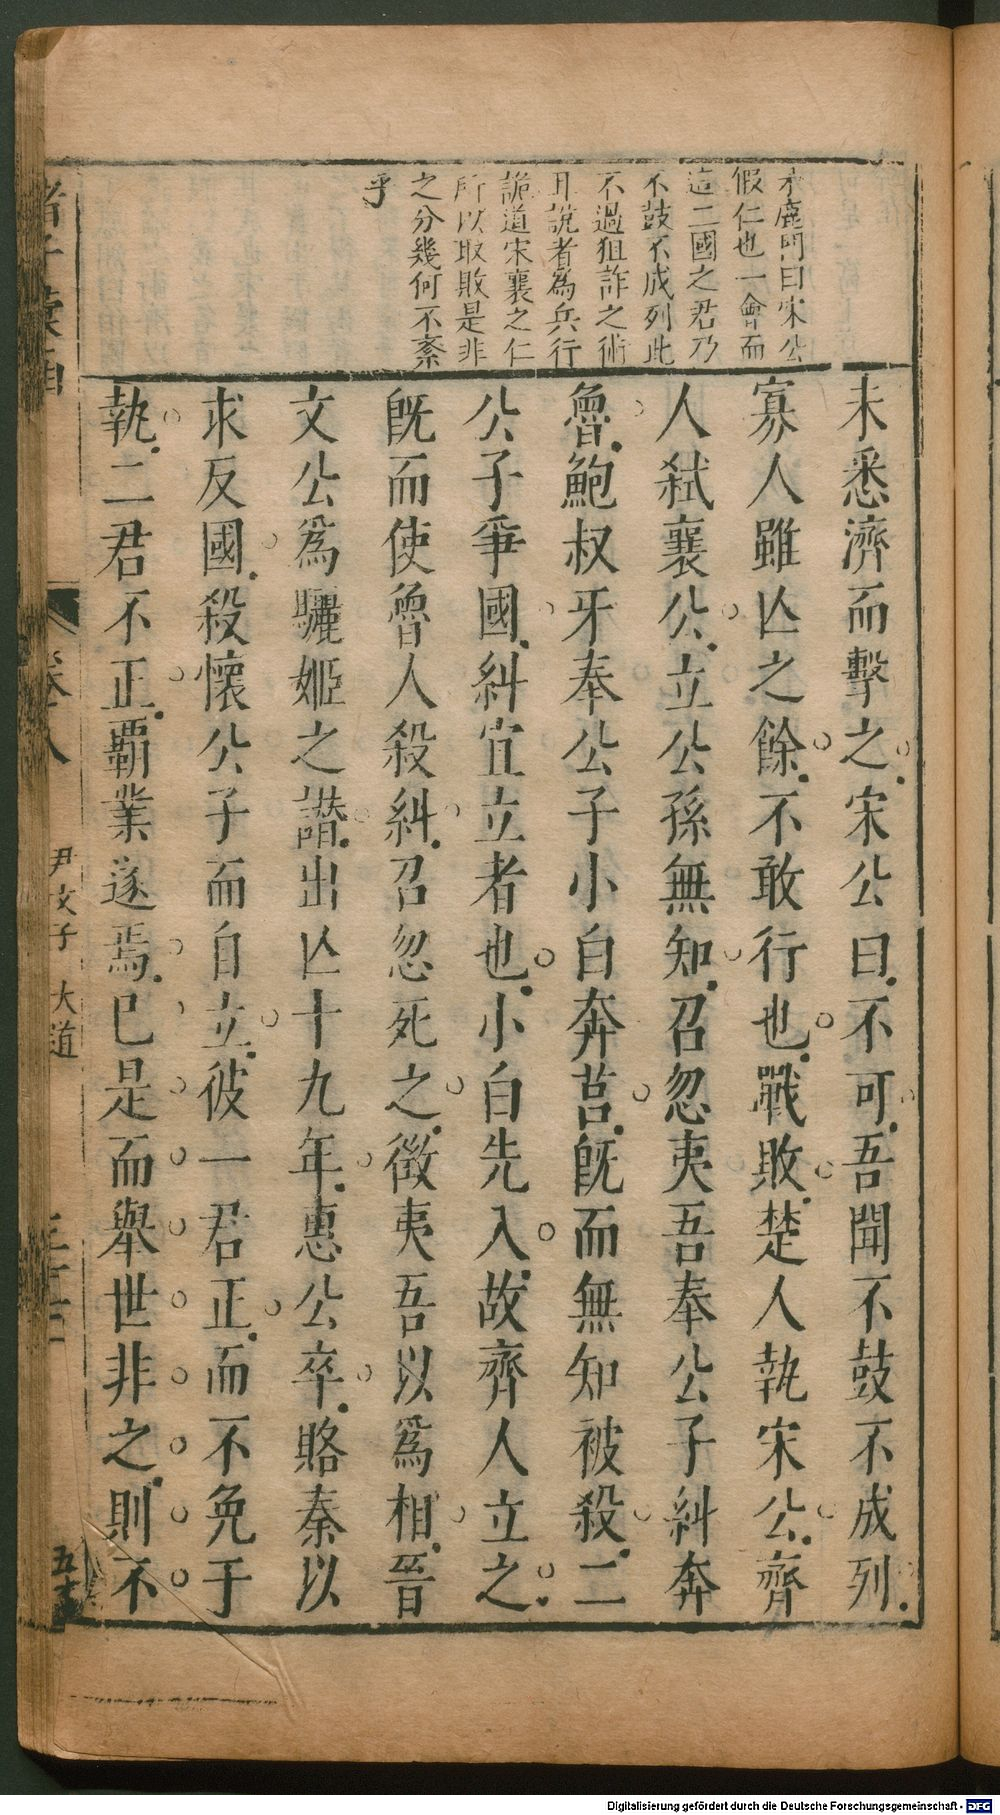 鹿門曰宋公
假仁也一會而
這二國之君乃
不鼓不成列此
不過狙詐之術
耳說者為兵行
詭道宋襄之仁
所以取敗是非
之分幾何不紊
乎
未悉濟而擊之宋公曰不可吾聞不鼓不成列
寡人雖亾之餘不敢行也戰敗楚人執宋公齊
人弑襄公立公孫無知召忽夷吾奉公子糾奔
魯鮑叔牙奉公子小白奔莒旣而無知被殺二
公子爭國糾宜立者也小白先入故齊人立之
旣而使魯人殺糾召忽死之徵夷吾以爲相晉
文公爲驪姬之譖出亾十九年惠公卒賂秦以
求反國殺懷公子而自立彼一君正而不免于
執二君不正霸業遂焉巳是而舉世非之則不
諸子
卷八
尹文子 大道
五
Digitalisierung gefördert durch die Deutsche Forschungsgemeinschaft - DFG